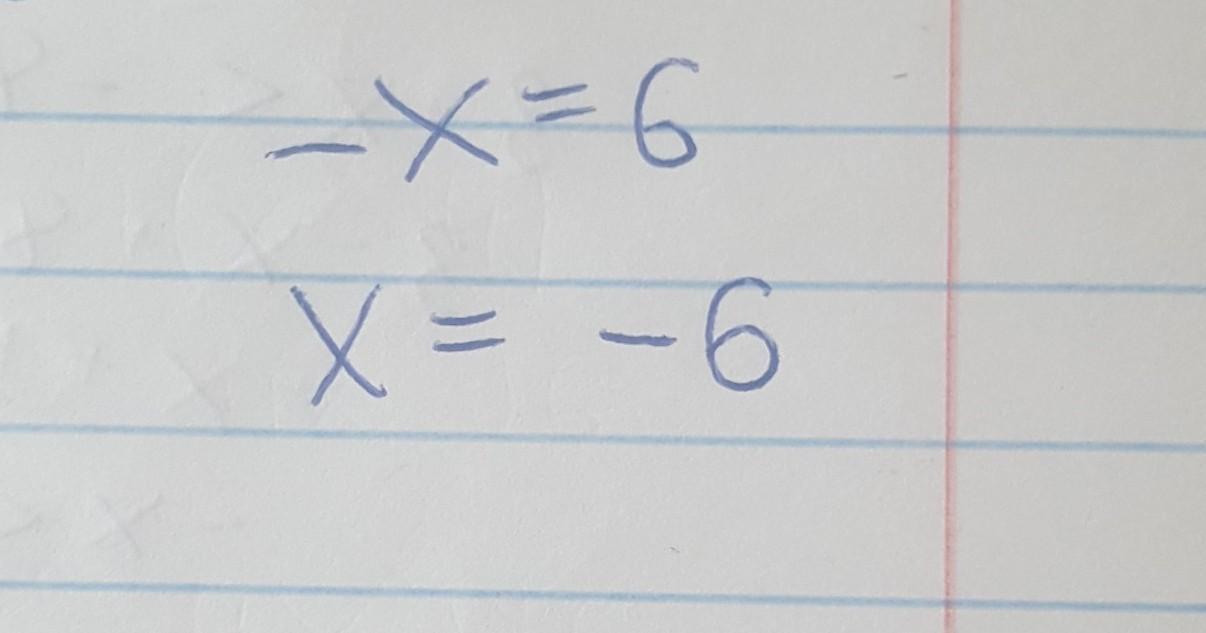 -x = 6
x = -6